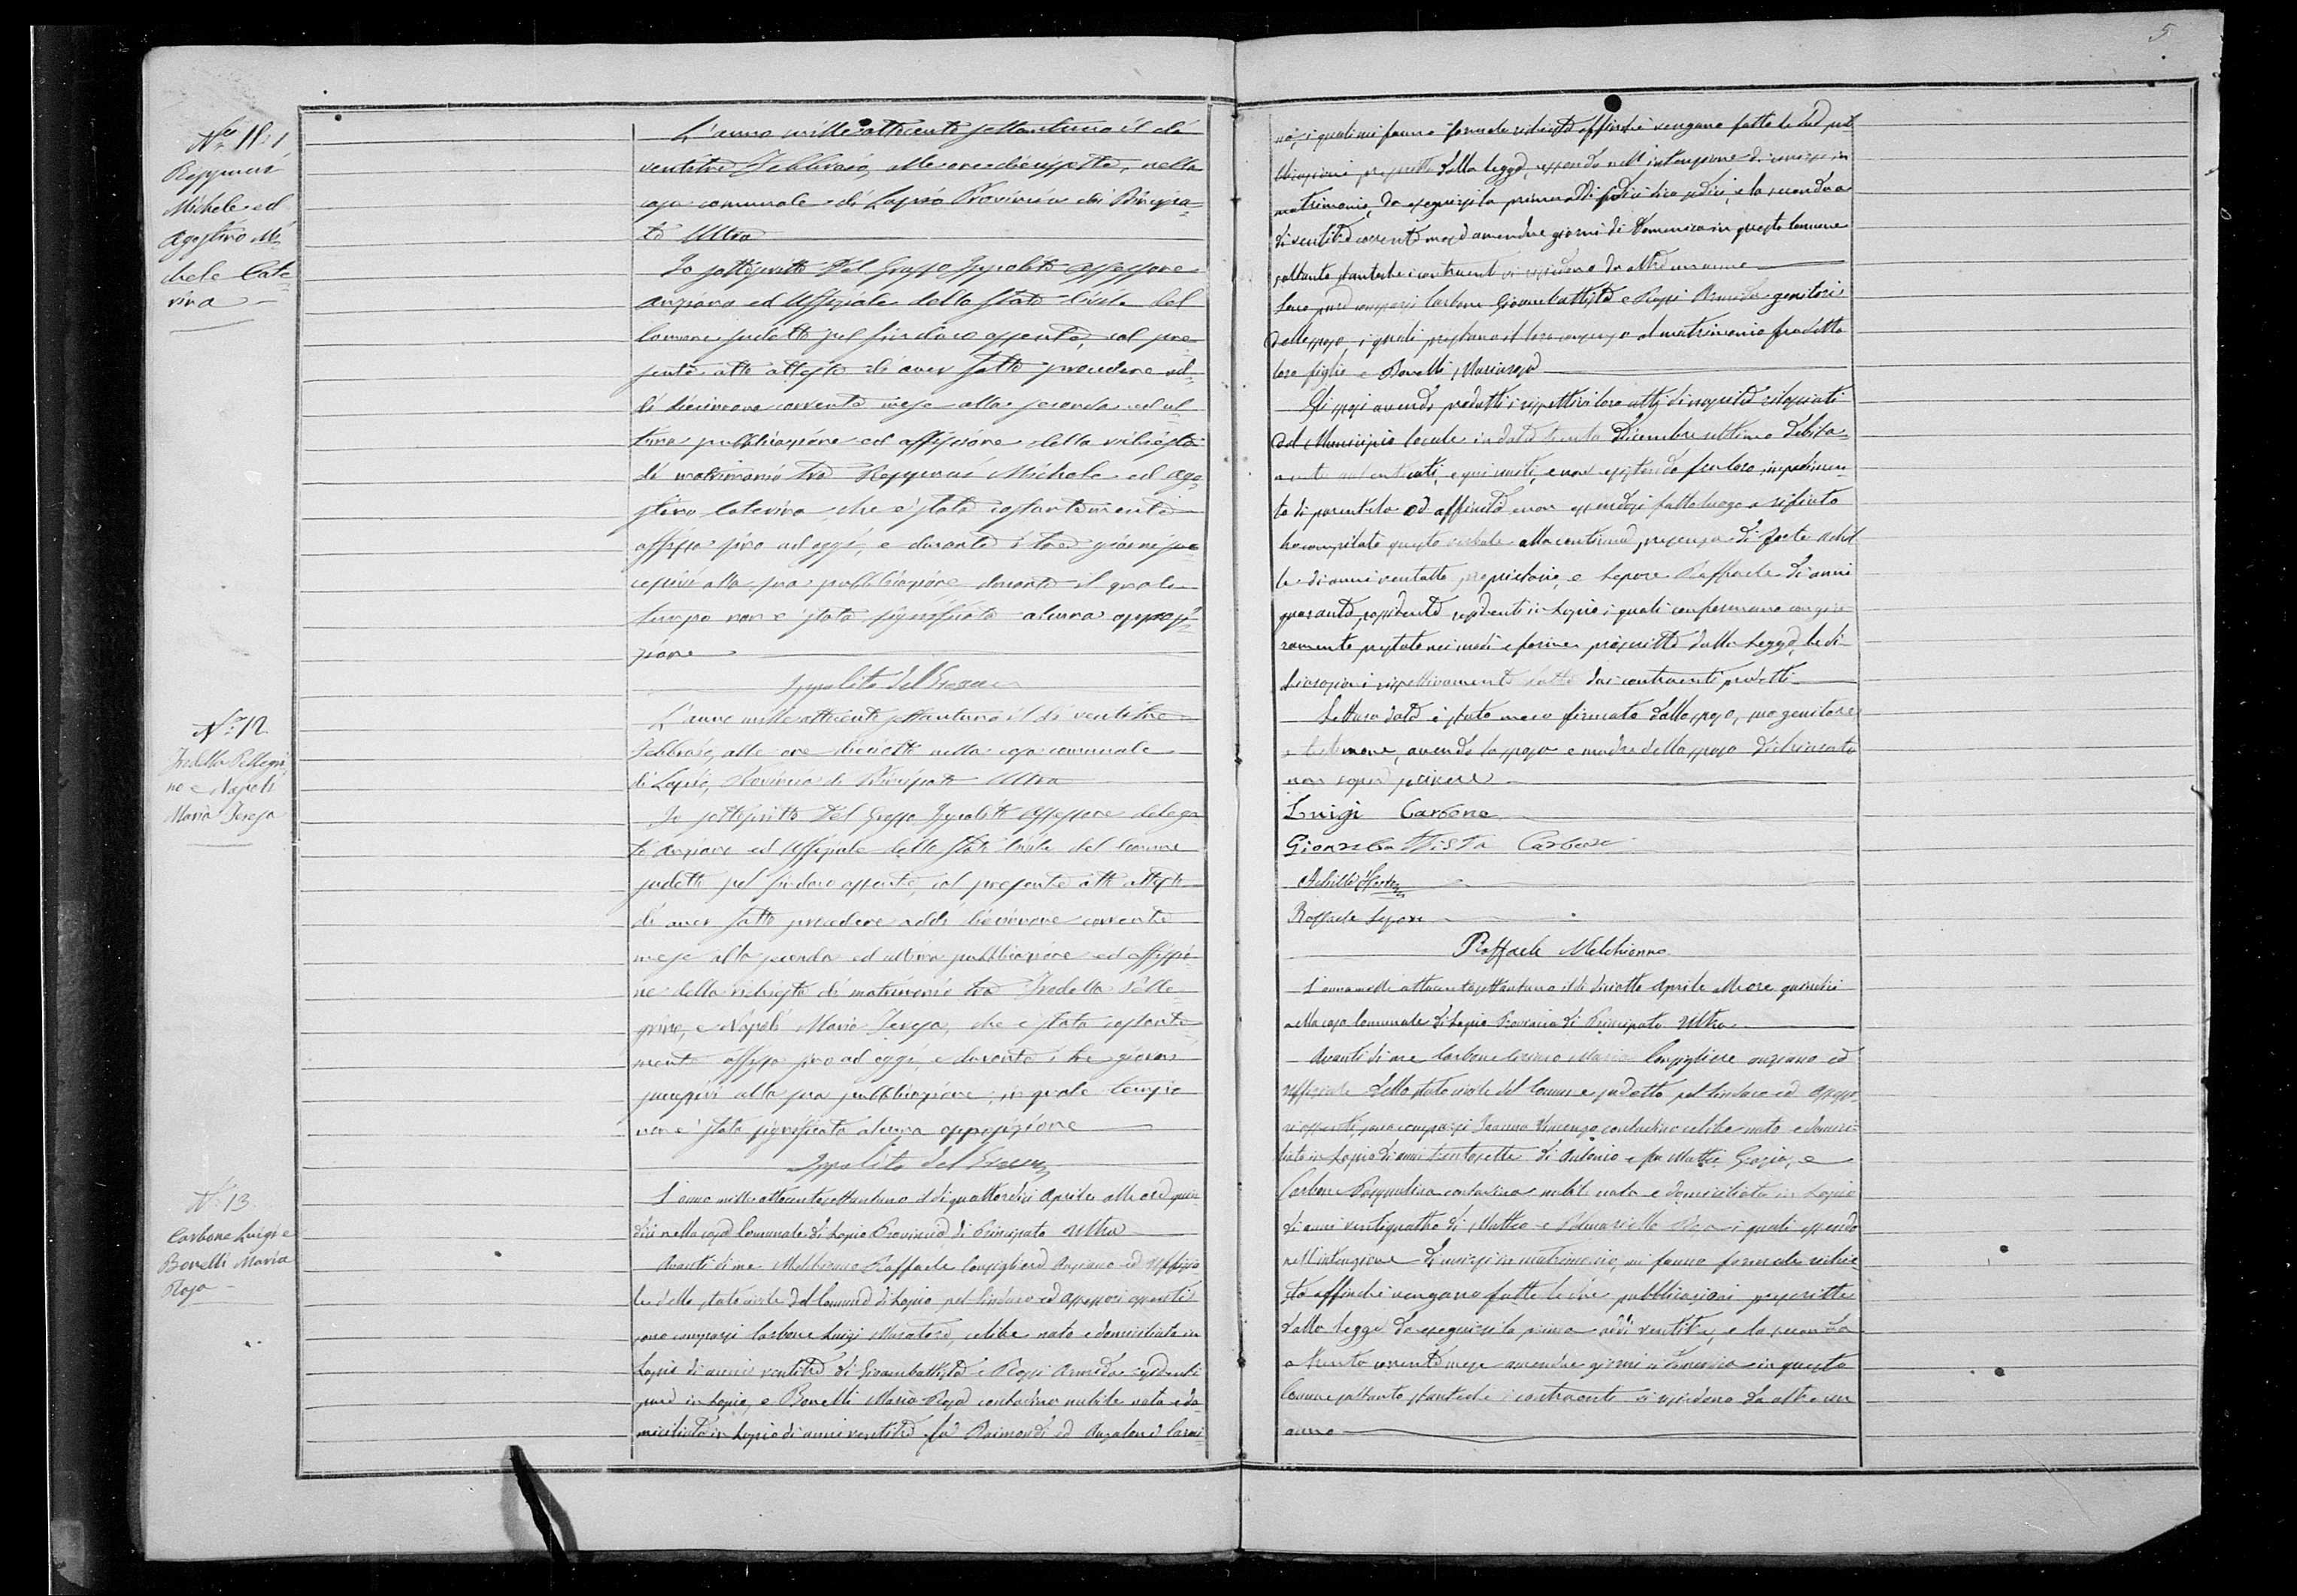 5
N.º 11.
Michele ed
Agostino Mi
chele Cate
rina
L'anno milleottocento settantuno il dì
ventitre Febbraio, alle ore diecissette, nella
casa comunale di Lapio Provincia di Principa=
to Ultra
Io sottoscritto Del Grosso Ippolito assessore
anziano ed Uffiziale dello Stato Civile del
Comune sudetto pel Sindaco assente, col pre-
sente atto attesto di aver fatto procedere ad-
dì diecinove corrente mese alla seconda ed ul-
tima pubblicazione ed affissione della richiesta
di matrimonio tra Michele ed Ago-
stino Caterina, che è stata costantemente
affissa fino ad oggi, e durante i tre giorni suc
cessivi alla sua pubblicazione durante il quale
tempo non è stata significata alcuna opposi-
zione
Ippolito del Grosso
N.º 12
Iredella Pellegri
no e Napoli
Maria Teresa
L'anno mille ottocento settantuno il dì ventitre
Febbraio, alle ore dieciotto nella casa comunale
di Lapio, Provincia di Principato Ultra
Io sottoscritto Del Grosso Ippolito Assessore delega
to Anziano ed Uffiziale dello Stato Civile del Comune
sudetto pel Sindaco assente, col presente atto attesto
di aver fatto procedere addì diecinove corrente
mese alla seconda ed ultima pubblicazione ed affissio
ne della richiesta di matrimonio tra Iredella Pelle-
grino, e Napoli Maria Teresa, che è stata costante
mente affissa fino ad oggi, e durante i tre giorni
successivi alla sua pubblicazione, in quale tempo
non è stata significata alcuna opposizione
Ippolito del Grosso
N.º 13.
Carbone Luigi e
Bonelli Maria
Rosa
L'anno mille ottocentosettantuno il dì quattordici Aprile alle ore quin
dici nella casa Comunale di Lapio Provincia di Principato Ultra
Avanti di me Melchionno Raffaele Consigliere Anziano ed Uffizia
le dello stato civile del Comune di Lapio pel Sindaco ed assessori assenti
sono comparsi Carbone Luigi Muratore, celibe nato e domiciliato in
Lapio di anni ventitre di Giovambattista e Rossi Armida residenti
pure in Lapio, e Bonelli Maria Rosa contadina nubile nata e do-
miciliata in Lapio di anni ventitre fu Raimondo ed Carmi-
na, i quali mi fanno formale richiesta affinchè vengano fatte le due pub
blicazioni prescritte dalla legge, essendo nell'intenzione di unirsi in
matrimonio, da eseguirsi la prima addì sedici, e la seconda a
di ventitre corrente mese amendue giorni di Domenica in questo Comune
soltanto stantechè i contraenti vi risiedono da oltre un anno
Sono pure comparsi Carbone Giovambattista e Rossi Armida genitori
dello sposo, i quali prestano il loro consenso al matrimonio fra detto
loro figlio e Bonelli Mariarosa
Gli sposi avendo prodotti i rispettivi loro atti di nascita rilasciati
dal Municipio locale in data trenta Dicembre ultimo debita-
mente autenticati, e qui uniti, e non esistendo fra loro impedimen
to di parentela od affinità e non essendosi fatto luogo a rifiuto
ho compilato questo verbale alla continua presenza di Forte Achil
le di anni ventotto proprietario, e Lepore Raffaele di anni
quaranta residenti in Lapio, i quali confermano con giu
ramento prestato nei modi e forme prescritte dalla Legge, le di-
chiarazioni rispettivamente fatte dai contraenti predetti
Lettura data è stato meco firmato dallo sposo, suo genitore
e testimoni, avendo la sposa e madre dello sposo dichiarato
non saper scrivere
Luigi Carbone
Giovanbattista Carbone
Achille Forte
Raffaele Lepore
Raffaele Melchionno
L'anno mille ottocento settantuno il dì diciotto Aprile alle ore quindici
nella casa Comunale di Lapio Provincia di Principato Ultra
Avanti di me Carbone Consigliere anziano ed
Uffiziale dello stato civile del Comune sudetto pel Sindaco ed Assesso
ri assenti, sono comparsi Vincenzo contadino celibe nato e domici
liato in Lapio di anni trentasette di Antonio e fu Mattia Grazia, e
Carbone Pasqualina contadina nubile nata e domiciliata in Lapio
di anni ventiquattro di Matteo e i quali essendo
nell'intenzione di unirsi in matrimonio, mi fanno formale richie
sta affinchè vengano fatte le due pubblicazioni prescritte
dalla legge da eseguirsi la prima addì ventitre, e la seconda
a trenta corrente mese amendue giorni di Domenica in questo
Comune soltanto stantechè i contraenti vi risiedono da oltre un
anno